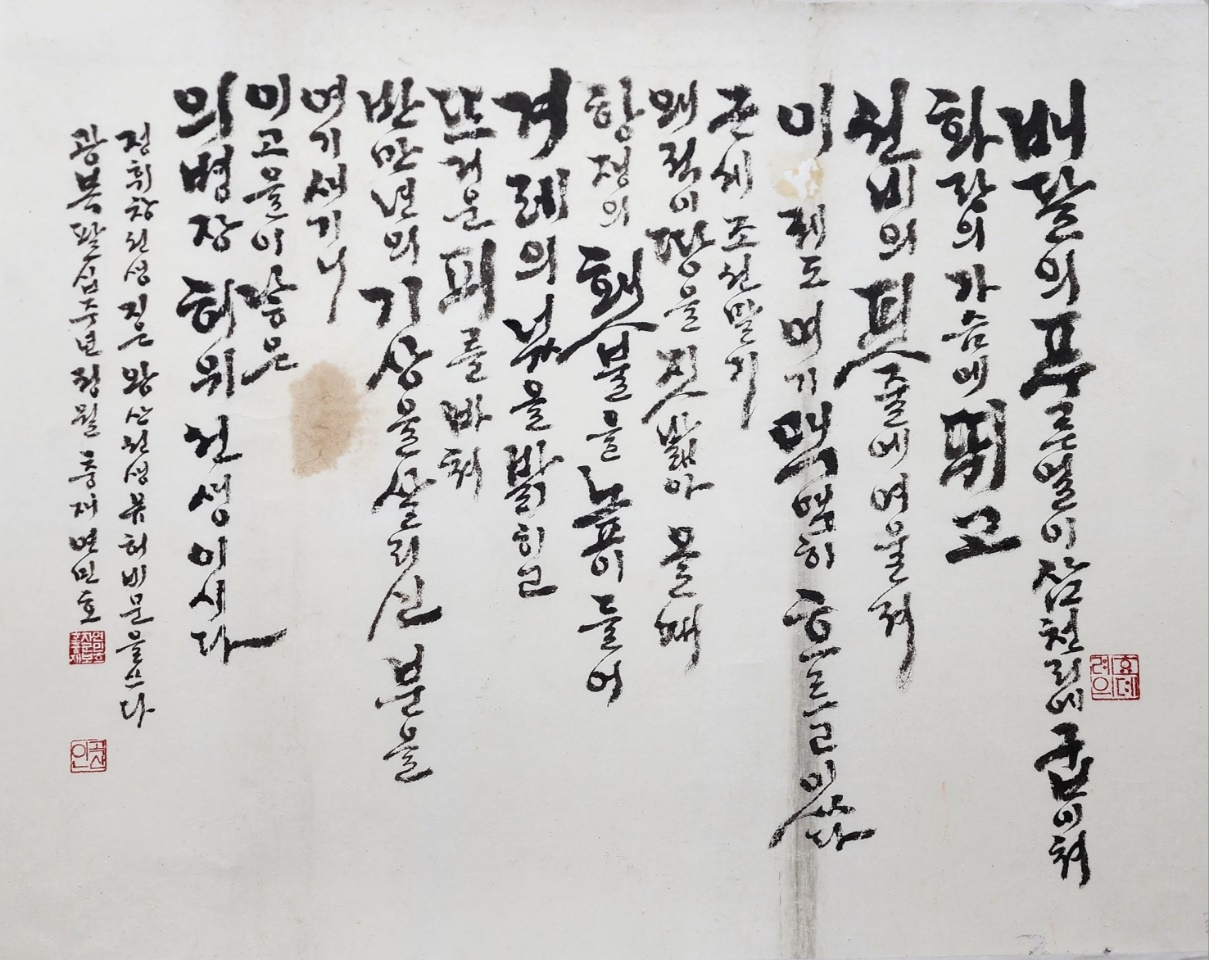 배달의 푸른얼이 삼천리에 굽이쳐
화랑의 가슴에 뛰고
선비의 핏줄에 여울져
이제도 여기 맥맥히 흐르고 있다
근세조선말기
왜적이 땅을 짓밟아 올 때
항쟁의 횃불을 높이 들어
겨레의 넋을 밝히고
뜨거운 피를 바쳐
반만년의 기상을 살리신 분을
여기 새기니
이 고을이 낳은
의병장 허위 선생이시다
정휘창선생 지은 왕산선생 유허비문을 쓰다
광복팔십주년 정월 연민호